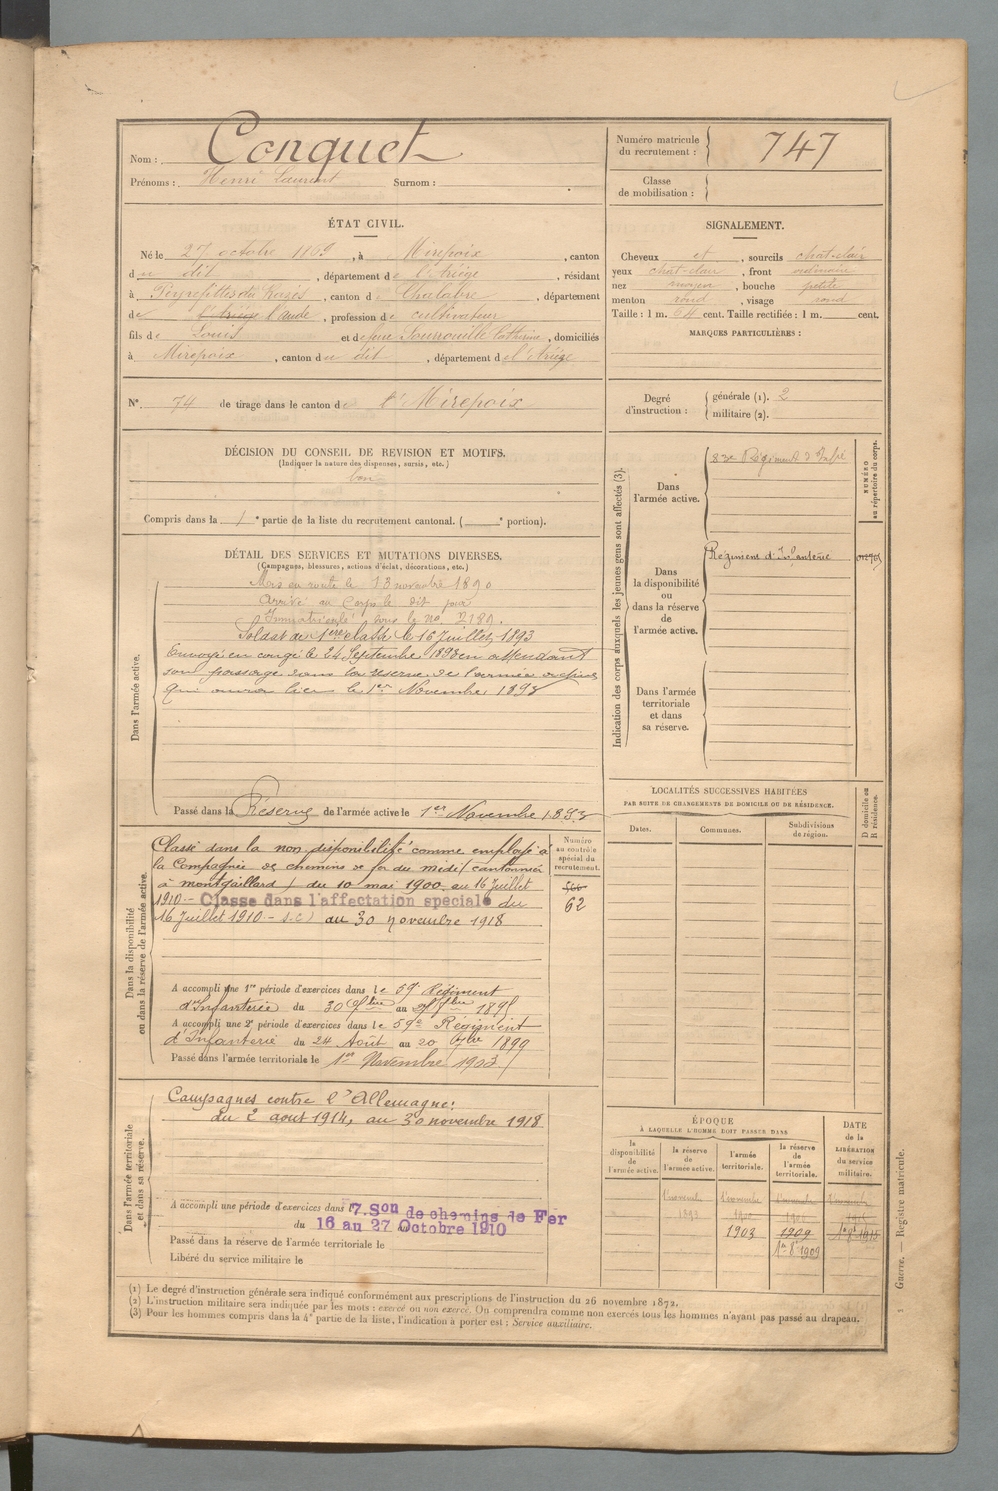 Nom : Conquet
Prénoms : Henri Laurent Surnom :
Numéro matricule du recrutement : 747
Classe de mobilisation :
ÉTAT CIVIL.
Né le 27 octobre 1869, à Mirepoix, canton
du dit, département de l'Ariège, résidant
à Peyrefitte du Razès, canton de Chalabre, département
de l'Ariège l'aude, profession de cultivateur
fils de Louis et de feue Catherine, domiciliés
à Mirepoix, canton du dit, département de l'Ariège
N° 74 de tirage dans le canton de Mirepoix
SIGNALEMENT.
Cheveux et, sourcils chât-clair
yeux chât-clair, front ordinaire
nez moyen, bouche petite
menton rond, visage rond
Taille : 1 m. 54 cent. Taille rectifiée : 1 m. cent.
MARQUES PARTICULIÈRES :
Degré d'instruction : générale (1). 2
militaire (2).
DÉCISION DU CONSEIL DE REVISION ET MOTIFS.
(Indiquer la nature des dispenses, sursis, etc.)
bon
Compris dans la 1e partie de la liste du recrutement cantonal. ( e portion).
DÉTAIL DES SERVICES ET MUTATIONS DIVERSES.
(Campagnes, blessures, actions d'éclat, décorations, etc.)
Dans l'armée active.
Mis en route le 13 novembre 1890
Arrivé au Corps le dit jour
Immatriculé sous le no. 2189.
Soldat de 1ère classe le 16 Juillet 1893
Envoyé en congé le 24 Septembre 1893 en attendant
son passage dans la réserve de l'armée active
qui aura lieu le 1er Novembre 1893
Passé dans la Réserve de l'armée active le 1er Novembre 1893
Indication des corps auxquels les jeunes gens sont affectés (3).
NUMÉRO au répertoire du corps.
Dans l'armée active.
83e Régiment d'Infie
Dans la disponibilité ou dans la réserve de l'armée active.
Régiment d'Infanterie
Dans l'armée territoriale et dans sa réserve.
LOCALITÉS SUCCESSIVES HABITÉES
PAR SUITE DE CHANGEMENTS DE DOMICILE OU DE RÉSIDENCE.
Dates. Communes. Subdivisions de région. D domicile ou R résidence.
Dans la disponibilité ou dans la réserve de l'armée active.
Numéro au contrôle spécial du recrutement.
62
Classé dans la non disponibilité comme employé à
la Compagnie de chemins de fer du midi (cantonnier
à montgaillard) du 10 mai 1900 au 16 Juillet
1910.- Classé dans l'affectation spéciale du
16 Juillet 1910 - s.c) au 30 novembre 1918
A accompli une 1re période d'exercices dans le 59 Régiment
d'Infanterie du 30 au
A accompli une 2e période d'exercices dans le 59e Régiment
d'Infanterie du 24 Août au 20 7bre 1899
Passé dans l'armée territoriale le 1er Novembre 1903
Dans l'armée territoriale et dans sa réserve.
Campagnes contre l'Allemagne:
du 2 aout 1914, au 30 novembre 1918
A accompli une période d'exercices dans 7.Son de chemins de Fer
du 16 au 27 Octobre 1910
Passé dans la réserve de l'armée territoriale le
Libéré du service militaire le
ÉPOQUE
À LAQUELLE L'HOMME DOIT PASSER DANS
la disponibilité de l'armée active. la réserve de l'armée active. l'armée territoriale. la réserve de l'armée territoriale. DATE de la LIBÉRATION du service militaire.
1893
1903 1909
1er 8bre 1909
(1) Le degré d'instruction générale sera indiqué conformément aux prescriptions de l'instruction du 26 novembre 1872.
(2) L'instruction militaire sera indiquée par les mots : exercé ou non exercé. On comprendra comme non exercés tous les hommes n'ayant pas passé au drapeau.
(3) Pour les hommes compris dans la 4e partie de la liste, l'indication à porter est : Service auxiliaire.
1 Guerre. — Registre matricule.